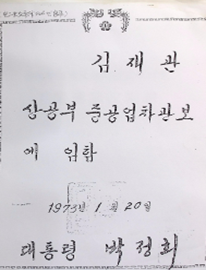 김재관
상공부 중공업차관보
에 임함
1973년 1월 20일
대통령 박정희